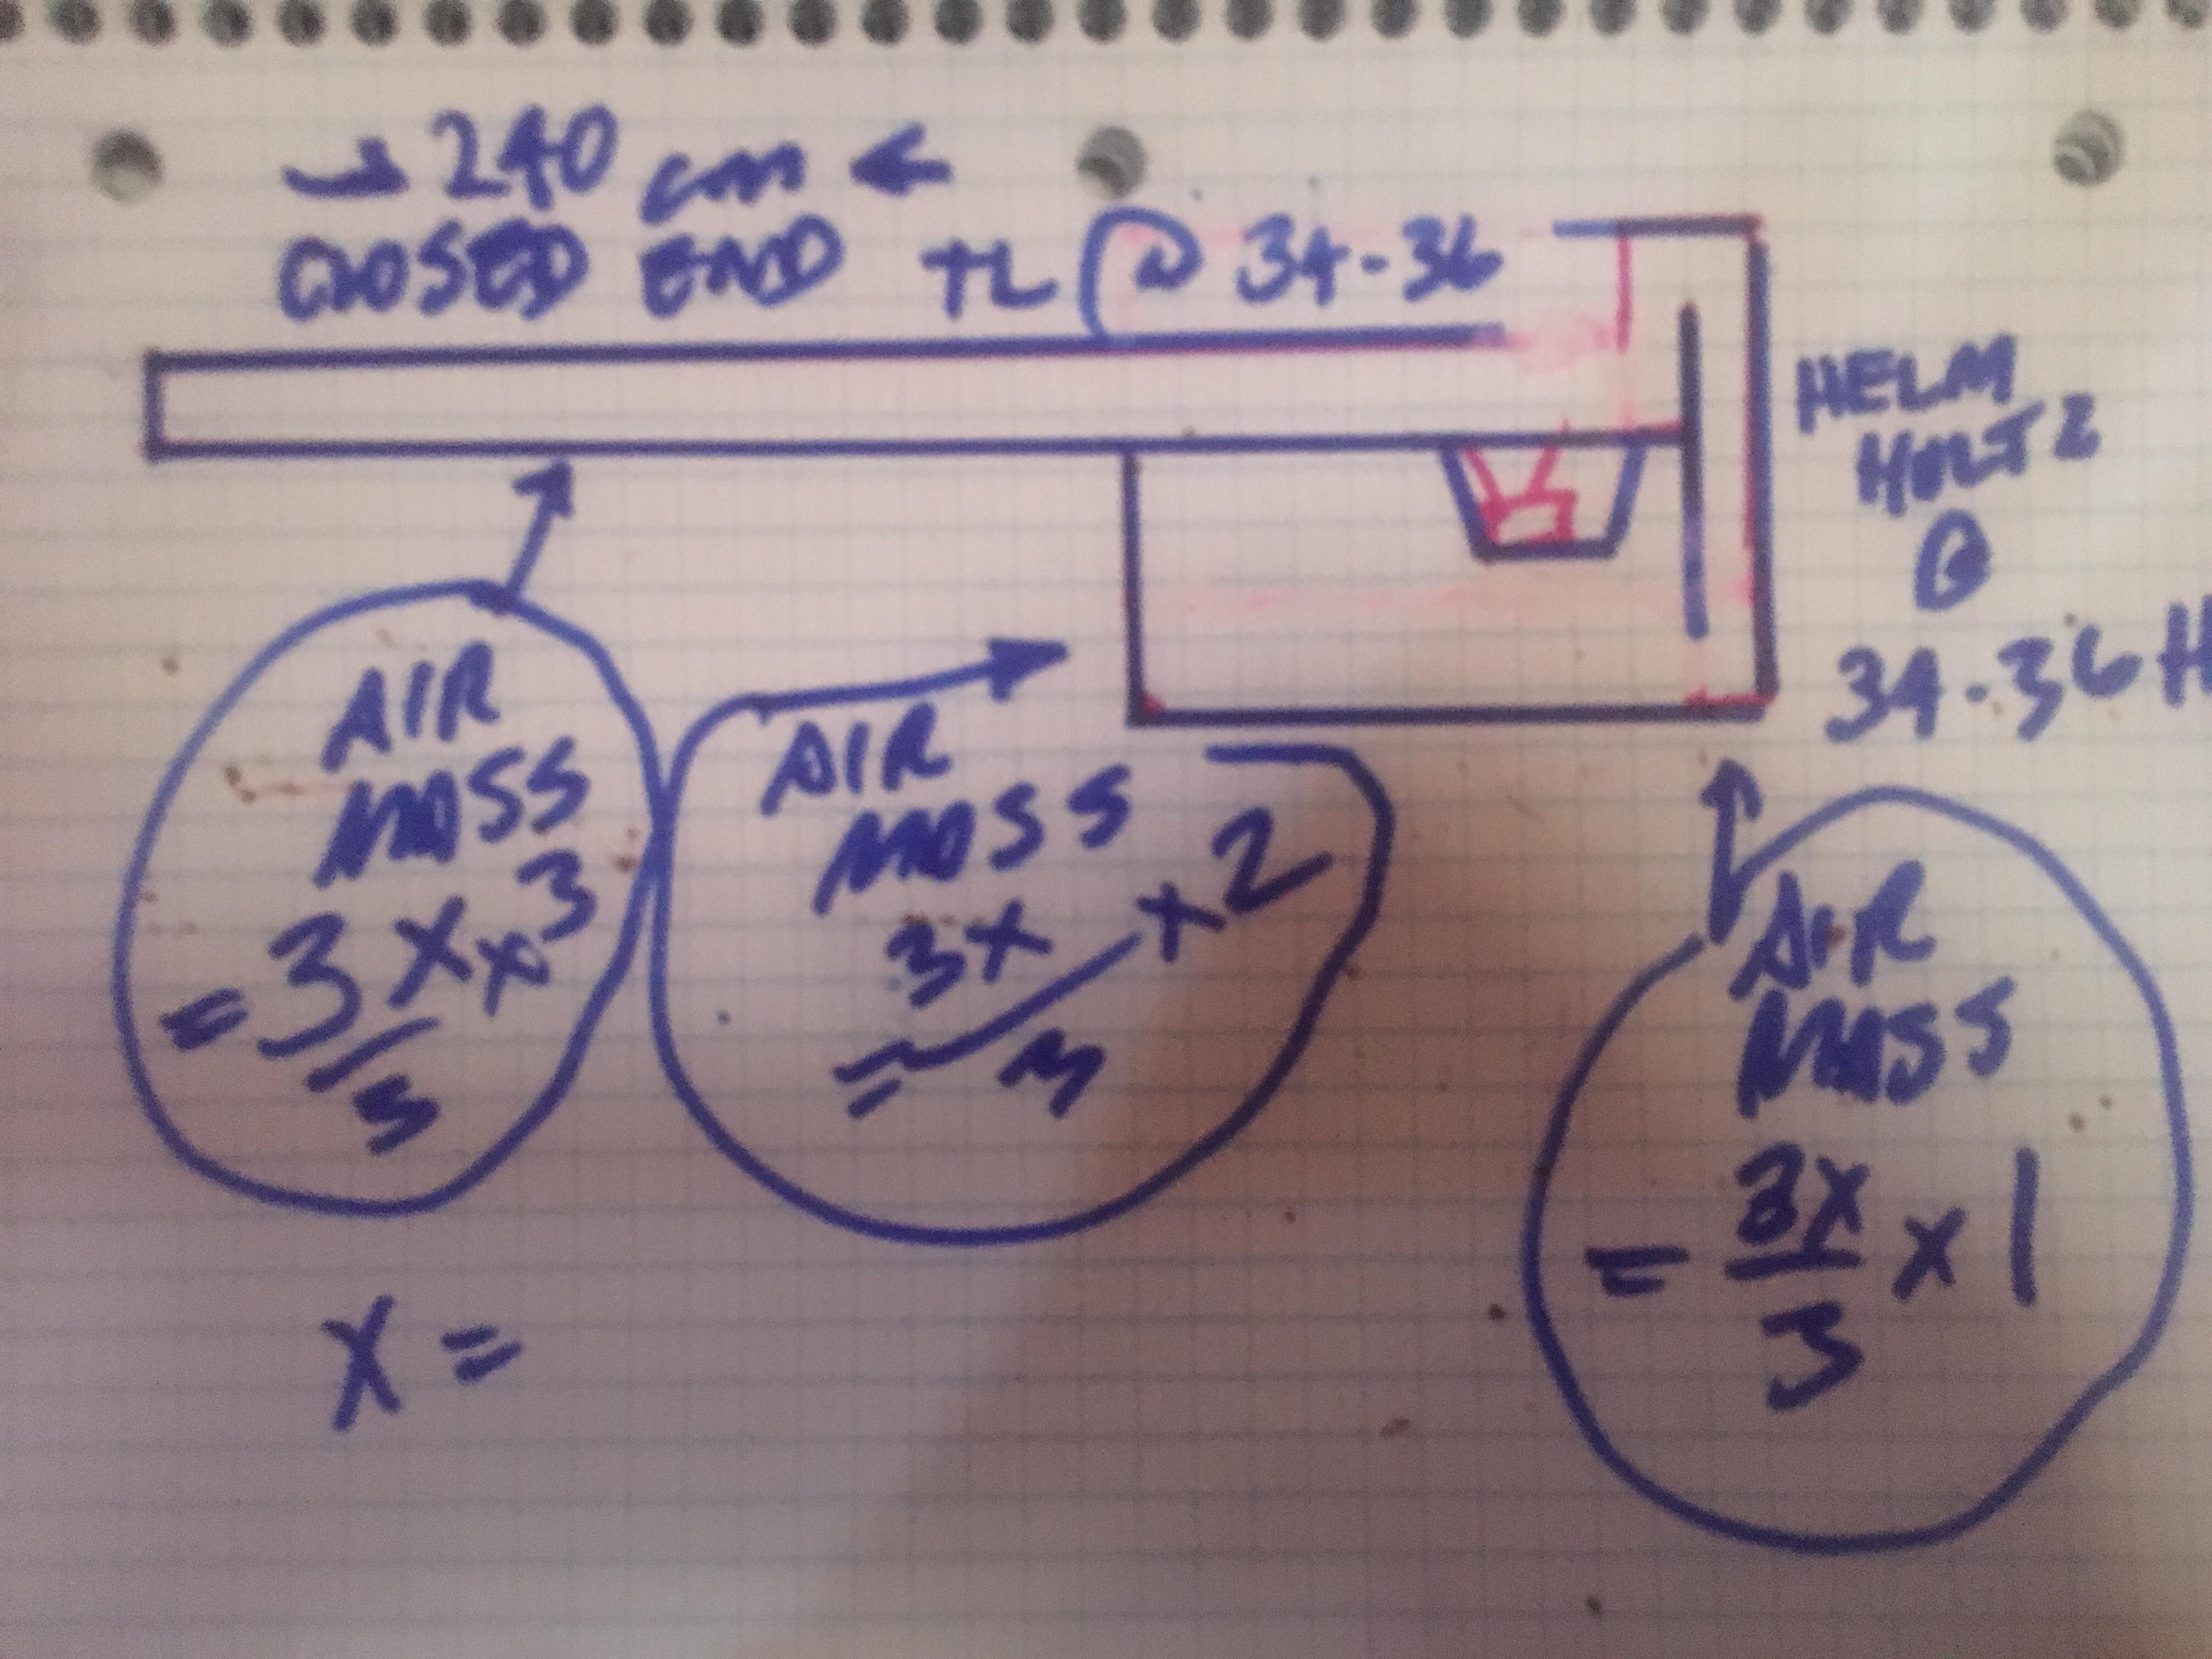 → 240 cm ←
CLOSED END TL @ 34-36
HELM
HOLTZ
@
34-36 H
AIR
MASS
= 3X x 3
/3
AIR
MASS
3X x 2
= /3
AIR
MASS
= 3X/3 x 1
X =